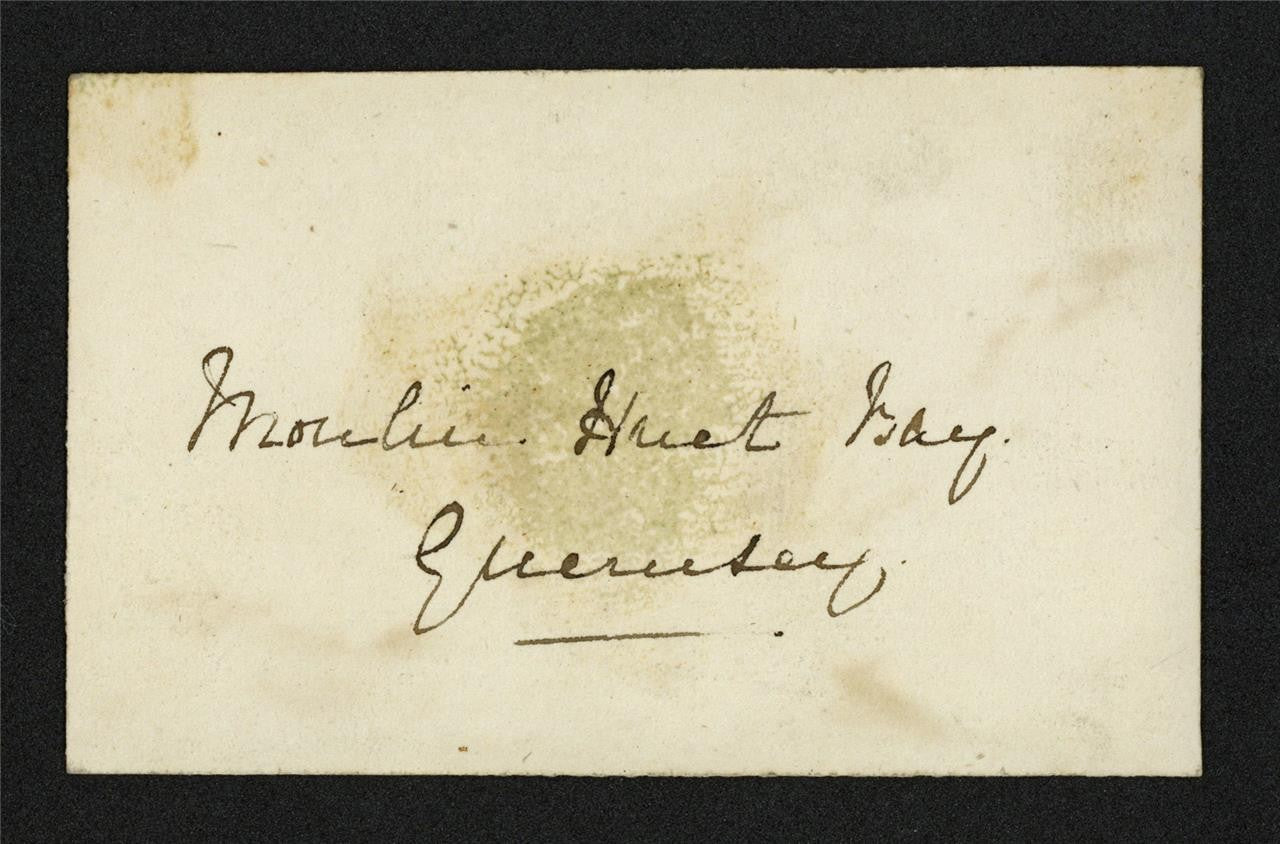 Moulin Huet Bay.
Guernsey.